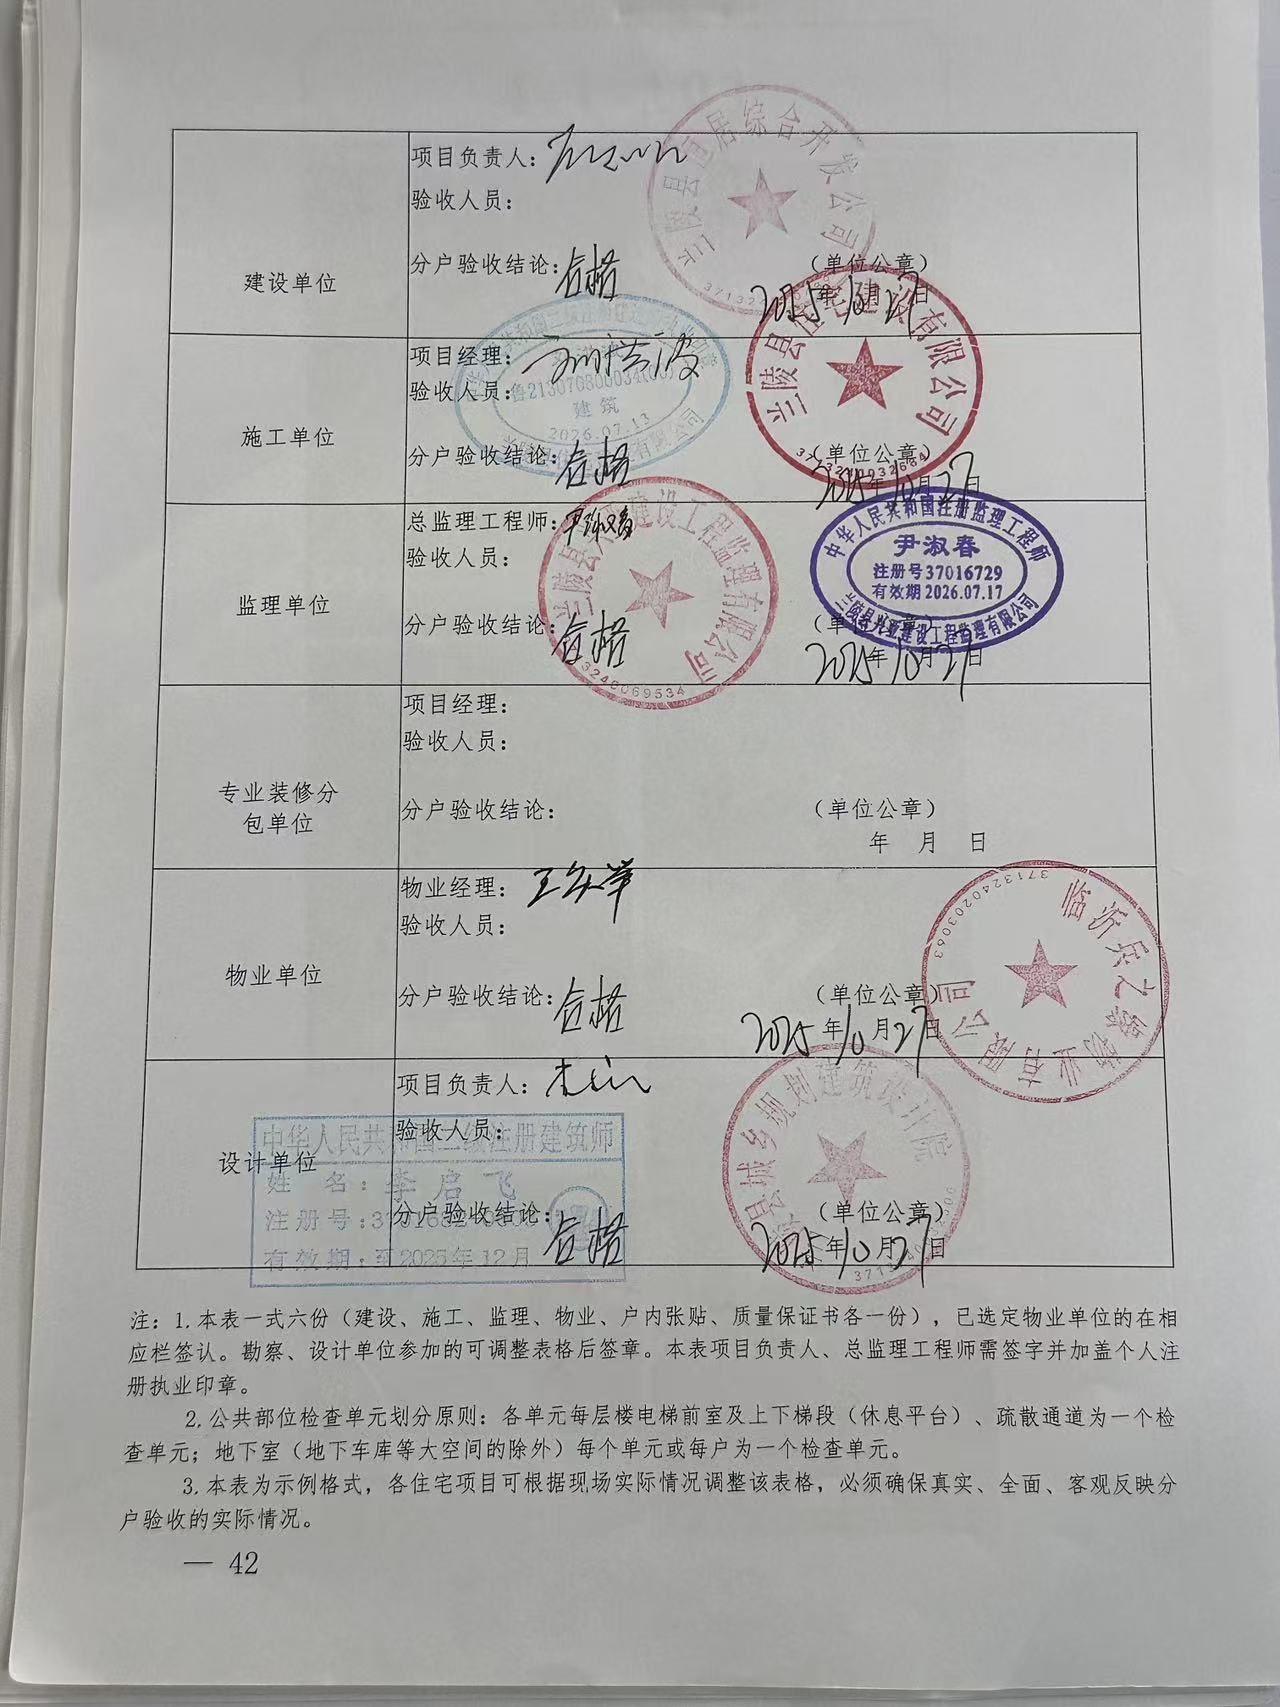 建设单位
项目负责人:
验收人员:
分户验收结论: 合格
(单位公章)
2025年10月27日
综合开发公司
施工单位
项目经理:
验收人员:
分户验收结论: 合格
建筑
2026.07.13
(单位公章)
2025年10月27日
兰陵县住宅建设有限公司
监理单位
总监理工程师: 尹淑春
验收人员:
分户验收结论: 合格
建设工程监理有限公司
3240069534
中华人民共和国注册监理工程师
尹淑春
注册号37016729
有效期2026.07.17
兰陵县兴亚建设工程监理有限公司
(单位公章)
2025年10月27日
专业装修分
包单位
项目经理:
验收人员:
分户验收结论:
(单位公章)
年 月 日
物业单位
物业经理:
验收人员:
分户验收结论: 合格
(单位公章)
2025年10月27日
3713240203063
设计单位
项目负责人:
验收人员:
分户验收结论: 合格
中华人民共和国二级注册建筑师
姓 名: 李启飞
注册号:
有效期: 至2025年12月
县城乡规划建筑设计院
(单位公章)
2025年10月27日
注: 1.本表一式六份（建设、施工、监理、物业、户内张贴、质量保证书各一份），已选定物业单位的在相
应栏签认。勘察、设计单位参加的可调整表格后签章。本表项目负责人、总监理工程师需签字并加盖个人注
册执业印章。
2.公共部位检查单元划分原则: 各单元每层楼电梯前室及上下梯段（休息平台）、疏散通道为一个检
查单元; 地下室（地下车库等大空间的除外）每个单元或每户为一个检查单元。
3.本表为示例格式, 各住宅项目可根据现场实际情况调整该表格, 必须确保真实、全面、客观反映分
户验收的实际情况。
— 42